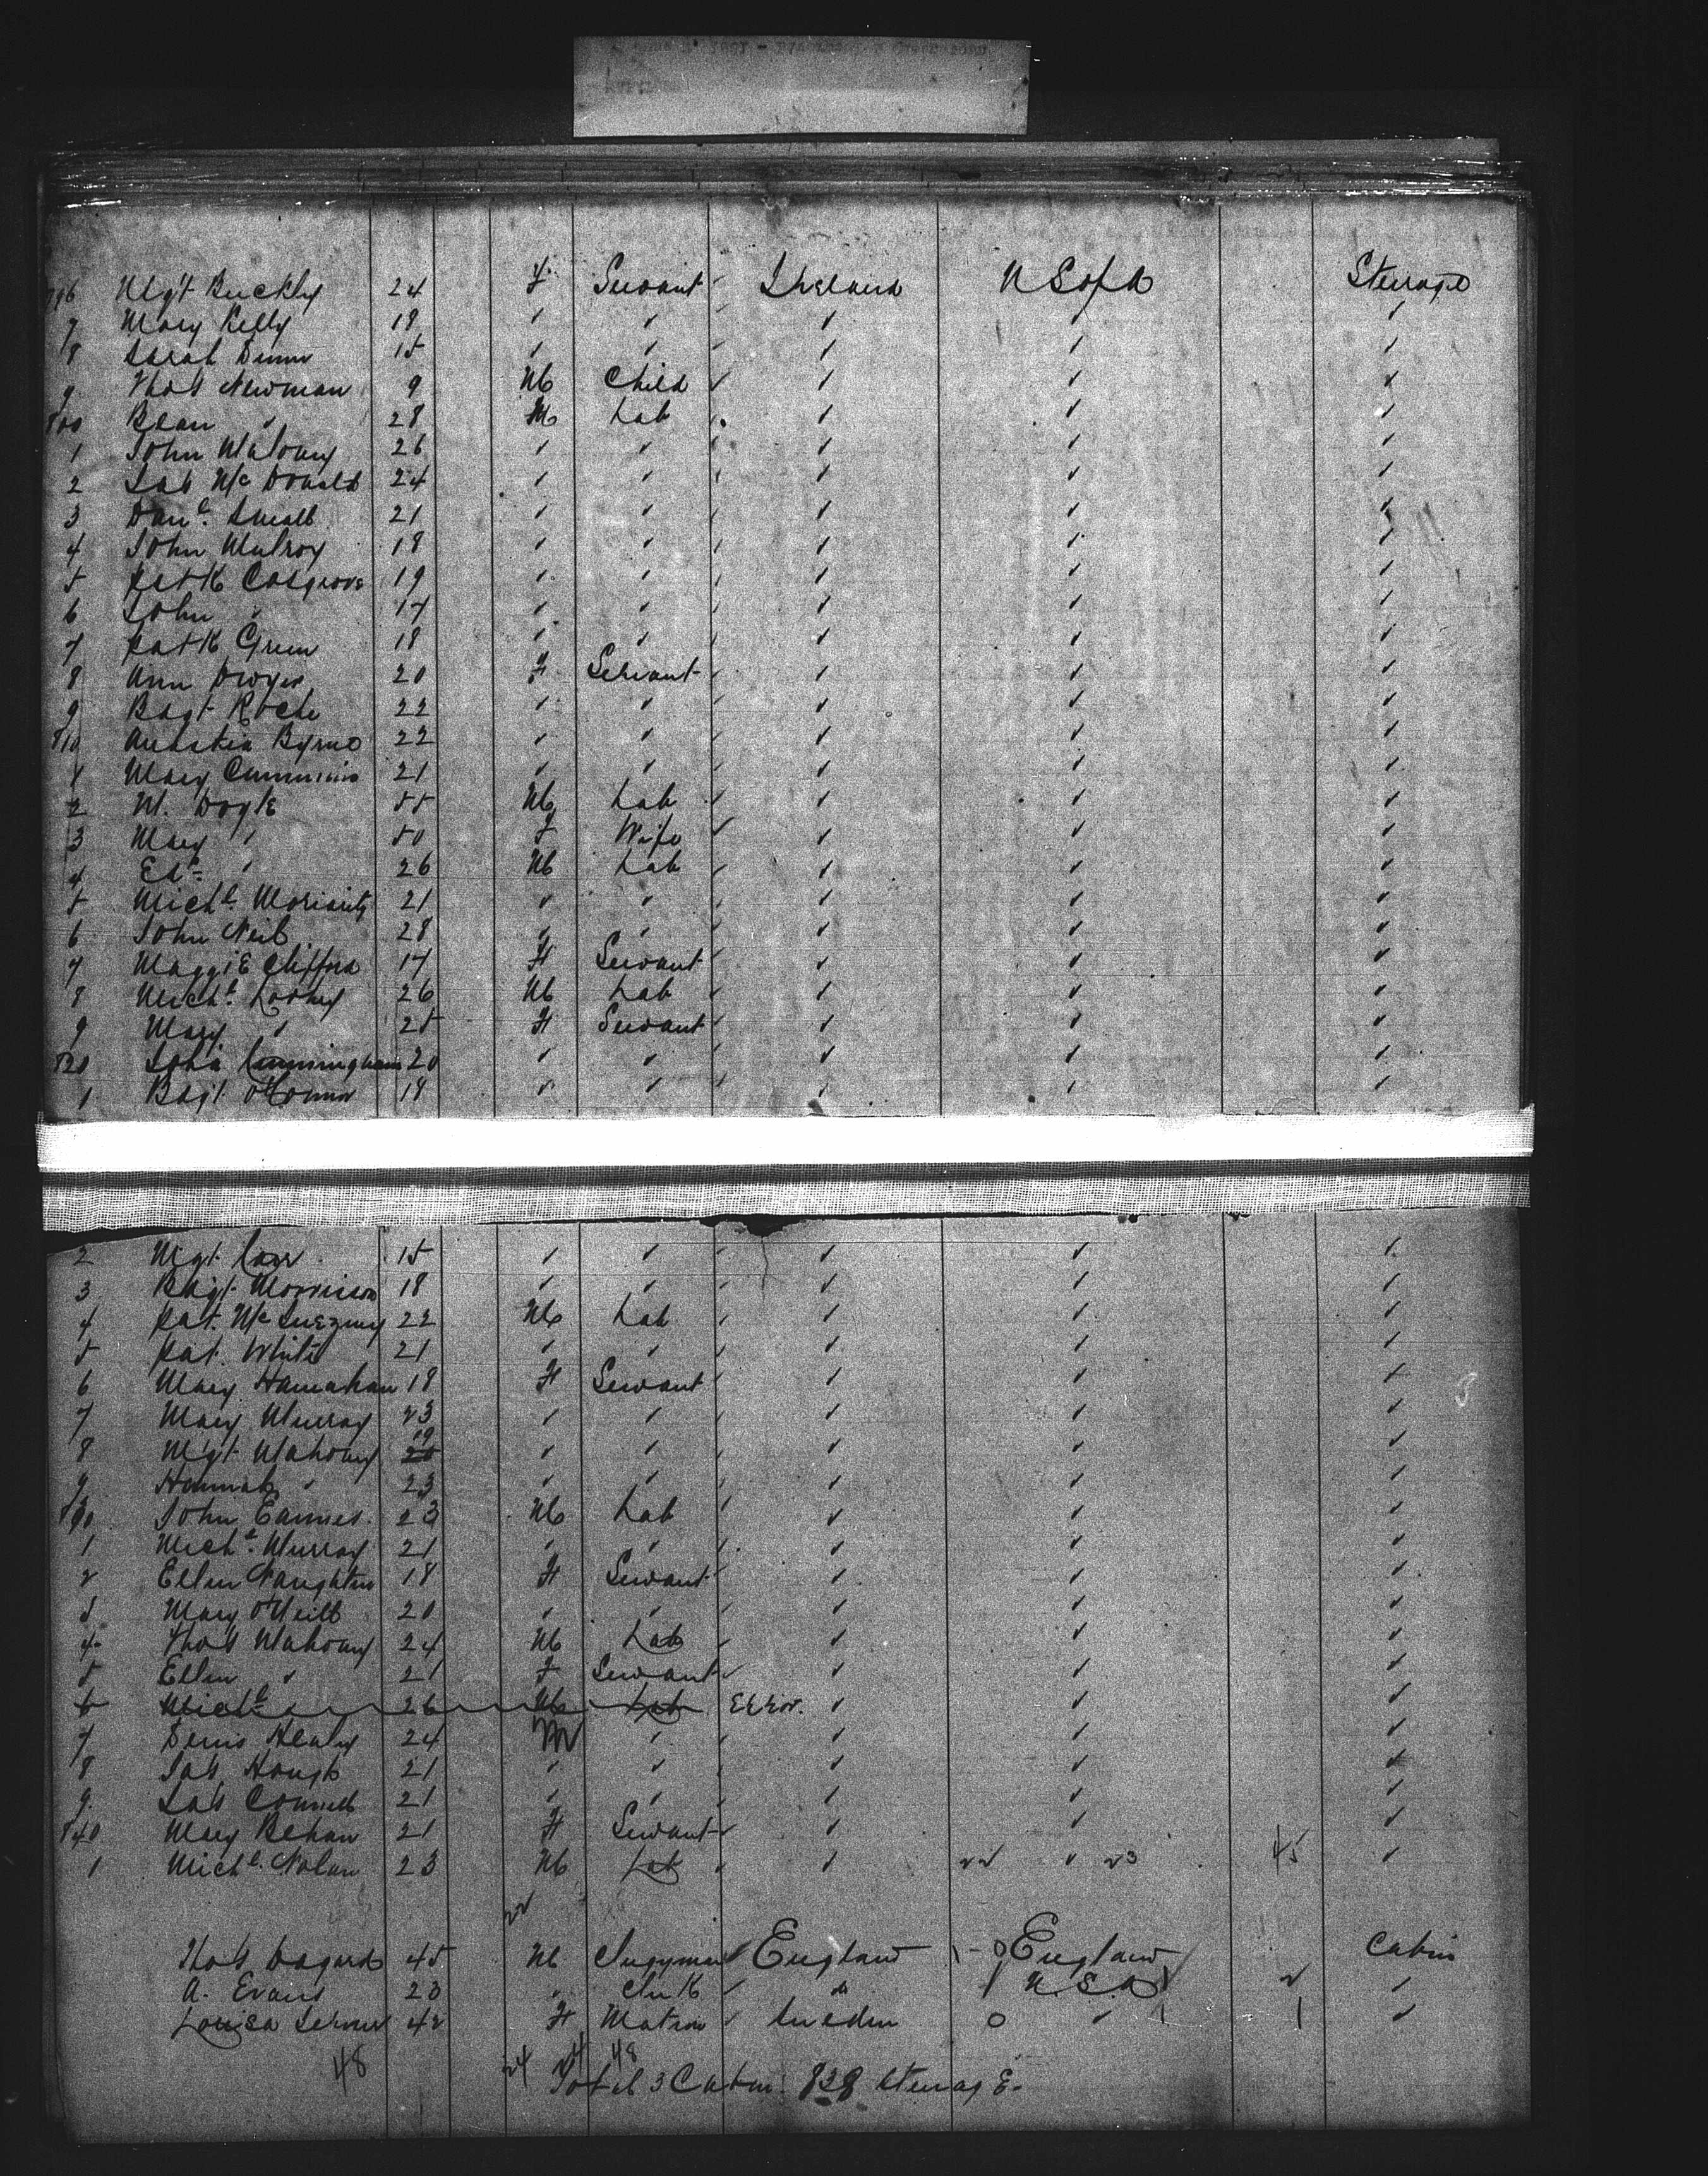 796 Mgt Buckly 24 F Servant Ireland U S of A Steerage
7 Mary Kelly 18 " " " " "
8 Sarah Dunn 15 " " " " "
9 Thos Newman 9 M Child " " "
800 Bean " 28 M Lab " " "
1 John Malony 26 " " " " "
2 Jas McDonald 24 " " " " "
3 Danl. Small 21 " " " " "
4 John Mulroy 18 " " " " "
5 Patk Cosgrove 19 " " " " "
6 John " 17 " " " " "
7 Patk Green 18 " " " " "
8 Ann Dwyer 20 F Servant " " "
9 Bagt Roche 22 " " " " "
810 Anastia Byrne 22 " " " " "
1 Mary Cummins 21 " " " " "
2 M. Doyle 55 M Lab " " "
3 Mary " 50 F Wife " " "
4 Edd " 26 M Lab " " "
5 Michl. Moriarity 21 " " " " "
6 John Neil 28 " " " " "
7 Maggie Clifford 17 F Servant " " "
8 Michl. Looney 26 M Lab " " "
9 Mary " 25 F Servant " " "
820 Cunningham 20 " " " " "
1 Bagt. O'Connor 18 " " " " "
2 Mgt. Carr 15 " " " " "
3 Bagt. Morrison 18 " " " " "
4 Pat. 22 M Lab " " "
5 Pat. White 21 " " " " "
6 Mary Hanrahan 18 F Servant " " "
7 Mary Murray 23 " " " " "
8 Mgt Mahony 19 " " " " "
9 Hannah " 23 " " " " "
830 John Eames 23 M Lab " " "
1 Michl. Murray 21 " " " " "
2 Ellen Naughton 18 F Servant " " "
3 Mary O'Neill 20 " " " " "
4 Thos Mahony 24 M Lab " " "
5 Ellen " 21 F Servant " " "
6 Michl " 26 M Lab Error. " " "
7 Denis Healy 24 M " " " "
8 Jas Hough 21 " " " " "
9 Jas Connell 21 " " " " "
840 Mary Behan 21 F Servant " " "
1 Michl. Nolan 23 M Lab " 22 " 23 45 "
22
Thos 45 M Clergyman England 1 - 0 England Cabin
A. Evans 23 " Clerk do 1 U.S.A 2 "
Louisa 42 F Matron Sweden 0 " 1 1 "
48 24 24 48
Total 3 Cabin 838 Steerage